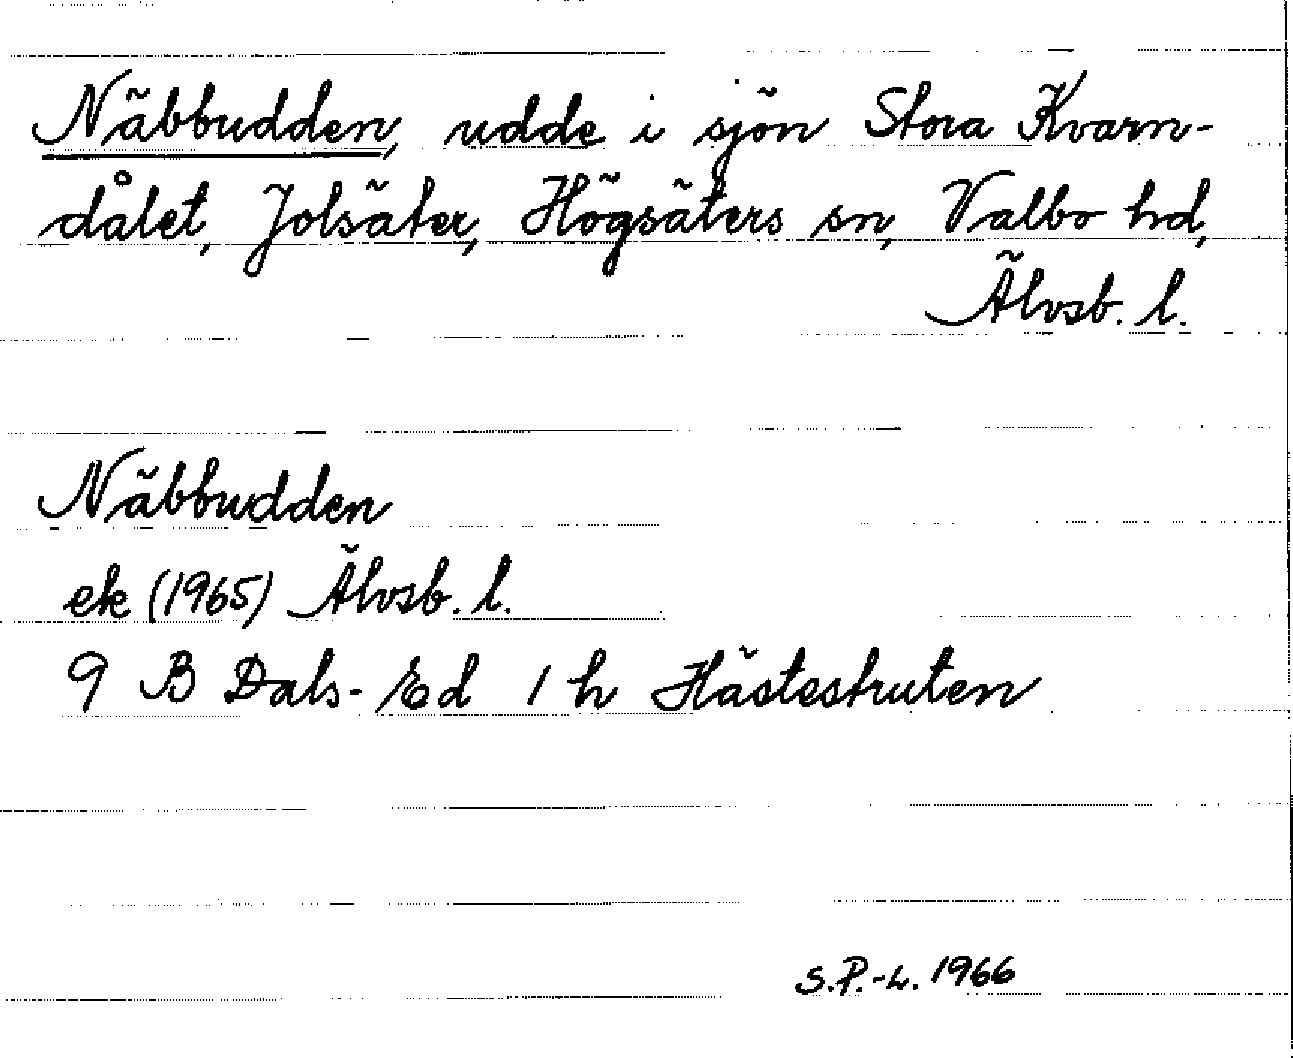 Näbbudden, udde i sjön Stora Kvarn-
dålet, Jolsäter, Högsäters sn, Valbo hd,
Älvsb. l.
Näbbudden
ek (1965) Älvsb. l.
9 B Dals-Ed 1 h Hästestruten
S.P.-L. 1966